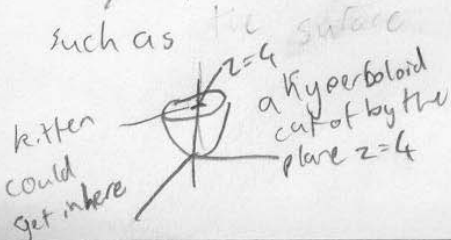 such as the surface
z=4
a Hyperboloid
cut of by the
plane z=4
kitten
could
get in here